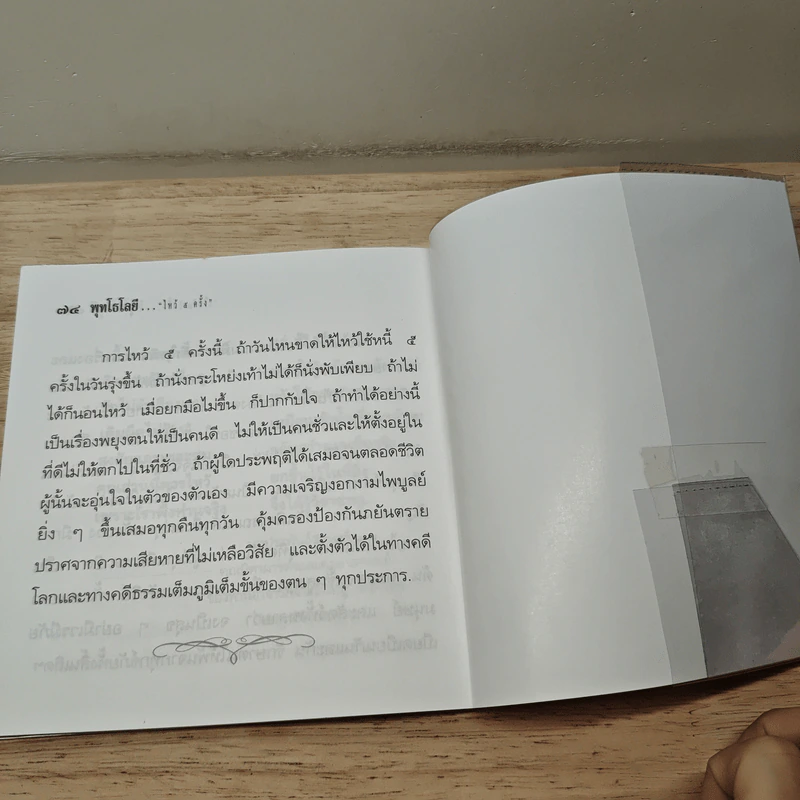 ๗๔ พุทโธโลยี... "ไหว้ ๕ ครั้ง"
การไหว้ ๕ ครั้งนี้ ถ้าวันไหนขาดให้ไหว้ใช้หนี้ ๕
ครั้งในวันรุ่งขึ้น ถ้านั่งกระโหย่งเท้าไม่ได้ก็นั่งพับเพียบ ถ้าไม่
ได้ก็นอนไหว้ เมื่อยกมือไม่ขึ้น ก็ปากกับใจ ถ้าทำได้อย่างนี้
เป็นเรื่องพยุงตนให้เป็นคนดี ไม่ให้เป็นคนชั่วและให้ตั้งอยู่ใน
ที่ดีไม่ให้ตกไปในที่ชั่ว ถ้าผู้ใดประพฤติได้เสมอจนตลอดชีวิต
ผู้นั้นจะอุ่นใจในตัวของตัวเอง มีความเจริญงอกงามไพบูลย์
ยิ่ง ๆ ขึ้นเสมอทุกคืนทุกวัน คุ้มครองป้องกันภยันตราย
ปราศจากความเสียหายที่ไม่เหลือวิสัย และตั้งตัวได้ในทางคดี
โลกและทางคดีธรรมเต็มภูมิเต็มขั้นของตน ๆ ทุกประการ.